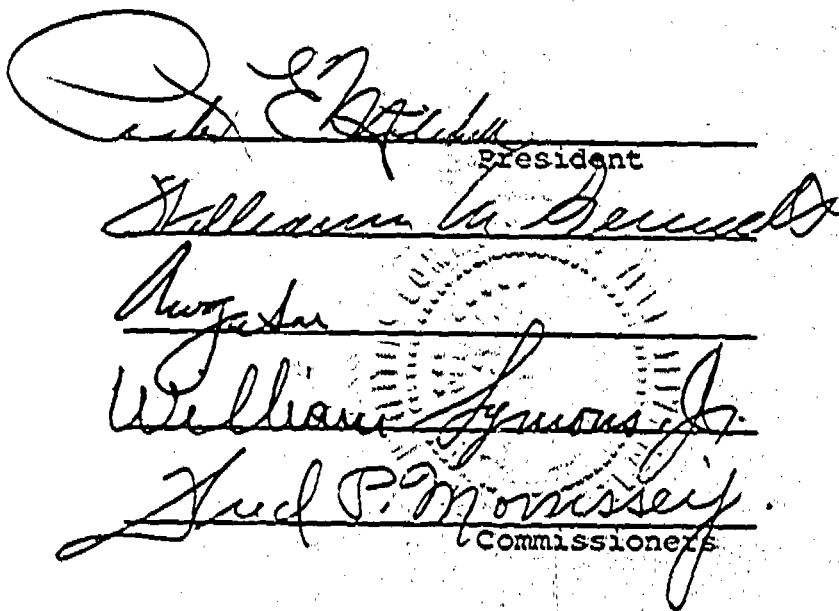 Peter E. Mitchell
President
William M. Bennett
William Symons Jr.
Fred P. Morrissey.
Commissioners